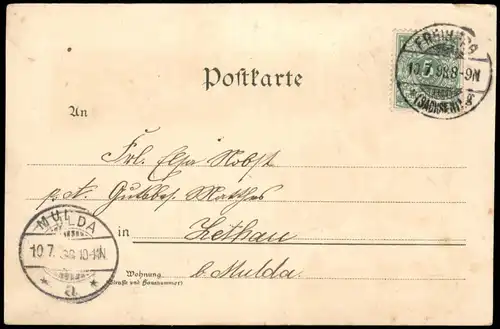 Postkarte
FREIBERG
10.7.98.8-9N
*(SACHSEN)
An
Frl. Elsa Nobst
p. A. Gutsbes. Matthes
in Zethau
b. Mulda.
MULDA
10 7. 98 10-11N
* a *
Wohnung
(Straße und Hausnummer)